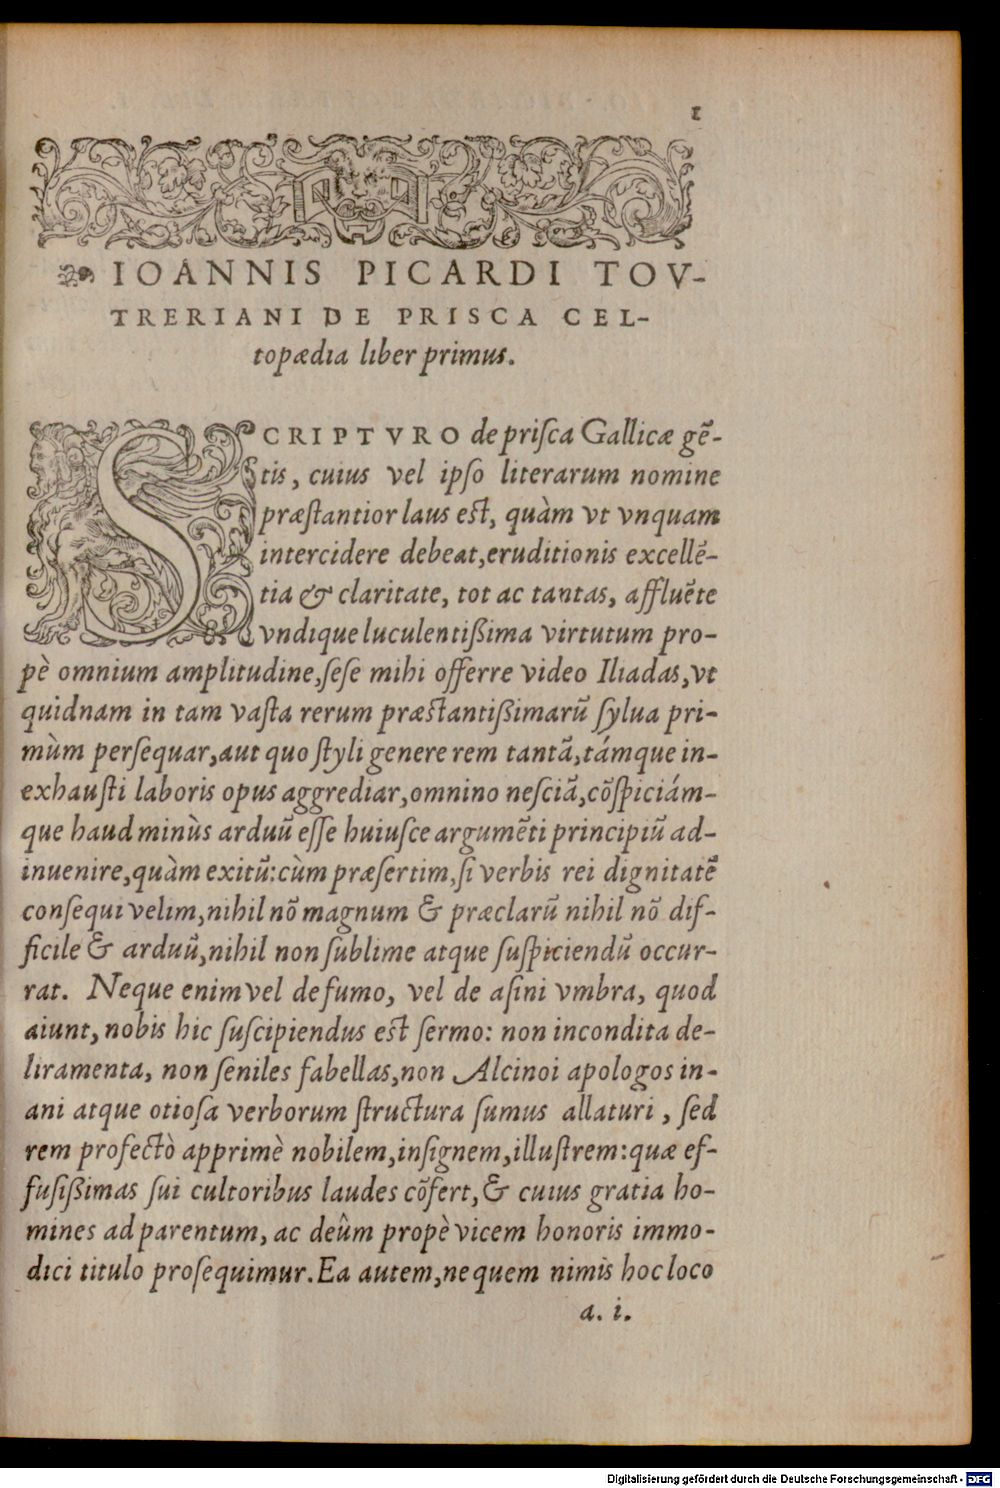 1
IOANNIS PICARDI TOV-
TRERIANI DE PRISCA CEL-
topædia liber primus.
SCRIPTVRO de priſca Gallicæ gẽ-
tis, cuius vel ipſo literarum nomine
præſtantior laus eſt, quàm vt vnquam
intercidere debeat, eruditionis excellẽ-
tia & claritate, tot ac tantas, affluẽte
vndique luculentißima virtutum pro-
pè omnium amplitudine, ſeſe mihi offerre video Iliadas, vt
quidnam in tam vaſta rerum præſtantißimarũ ſylua pri-
mùm perſequar, aut quo ſtyli genere rem tantã, támque in-
exhauſti laboris opus aggrediar, omnino neſciã, cõſpiciám-
que haud minùs arduũ eſſe huiuſce argumẽti principiũ ad-
inuenire, quàm exitũ: cùm præſertim, ſi verbis rei dignitatẽ
conſequi velim, nihil nõ magnum & præclarũ nihil nõ dif-
ficile & arduũ, nihil non ſublime atque ſuſpiciendũ occur-
rat. Neque enim vel de fumo, vel de aſini vmbra, quod
aiunt, nobis hic ſuſcipiendus eſt ſermo: non incondita de-
liramenta, non ſeniles fabellas, non Alcinoi apologos in-
ani atque otioſa verborum ſtructura ſumus allaturi, ſed
rem profectò apprimè nobilem, inſignem, illuſtrem: quæ ef-
fuſißimas ſui cultoribus laudes cõfert, & cuius gratia ho-
mines ad parentum, ac deûm propè vicem honoris immo-
dici titulo proſequimur. Ea autem, ne quem nimis hoc loco
a. i.
Digitalisierung gefördert durch die Deutsche Forschungsgemeinschaft - DFG